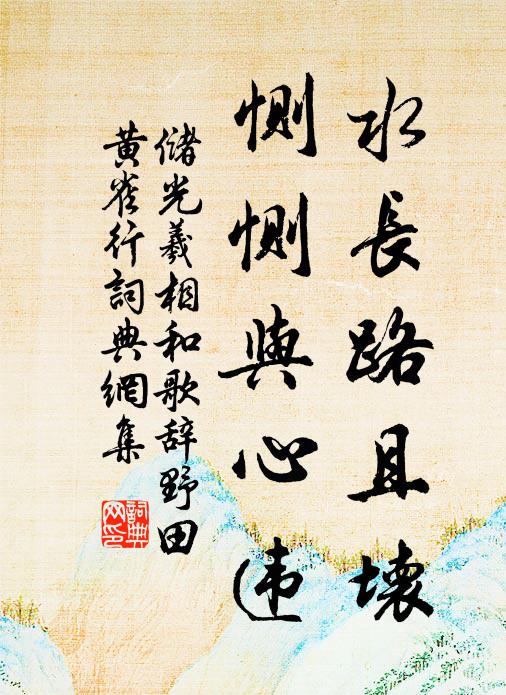 水長路且壞
惻惻與心违
儲光羲相和歌辞野田
黄雀行詞典網集
詞典
网印